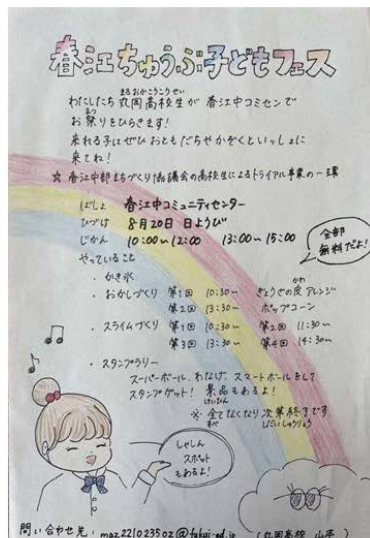 春江ちゅうぶ子どもフェス
まるおかこうこうせい
わたしたち 丸岡高校生が 春江中コミセンで
まつ
お祭りをひらきます!
来れる子はぜひ おともだちやかぞくといっしょに
来てね!
☆ 春江中部まちづくり協議会の高校生によるトライアル事業の一環
ばしょ 春江中コミュニティセンター
ひづけ 8月20日 日ようび
じかん 10:00~12:00 13:00~15:00
全部
無料だよ!
やっていること
・かき氷
かわ
・おかしづくり 第1回 10:30~ ぎょうざの皮アレンジ
第2回 13:30~ ポップコーン
・スライムづくり 第1回 10:30~ 第2回 11:30~
第3回 13:30~ 第4回 14:30~
・スタンプラリー
スーパーボール、わなげ、スマートボールをして
スタンプゲット! 景品もあるよ!
けいひん
※ 全てなくなり次第終了です
すべ しだいしゅうりょう
しゃしん
スポット
もあるよ!
問い合わせ先: @fukui-ed.jp (丸岡高校